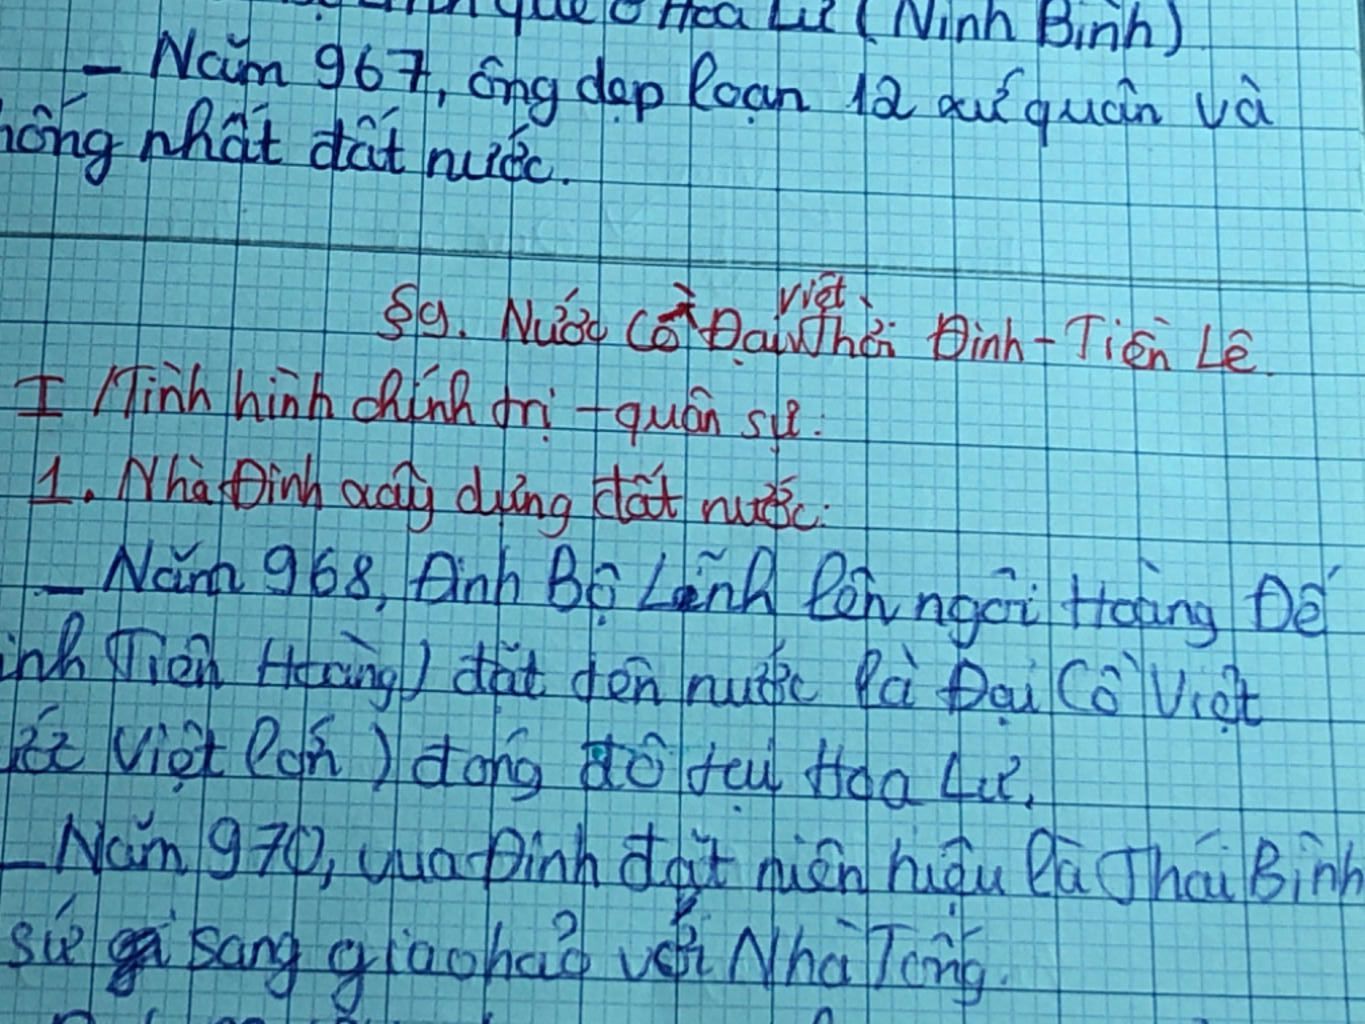 quê ở Hoa Lư (Ninh Bình)
- Năm 967, ông dẹp loạn 12 xứ quân và
nhất đất nước.
§9. Nước Cồ Đại Việt Thời Đinh - Tiền Lê.
I / Tình hình chính trị - quân sự:
1. Nhà Đinh xây dựng đất nước:
- Năm 968, Đinh Bộ Lĩnh lên ngôi Hoàng Đế
Tiên Hoàng) đặt tên nước là Đại Cồ Việt
Việt lớn) đóng đô tại Hoa Lư.
- Năm 970, vua Đinh đặt niên hiệu là Thái Bình
sứ sang giao hảo với Nhà Tống.